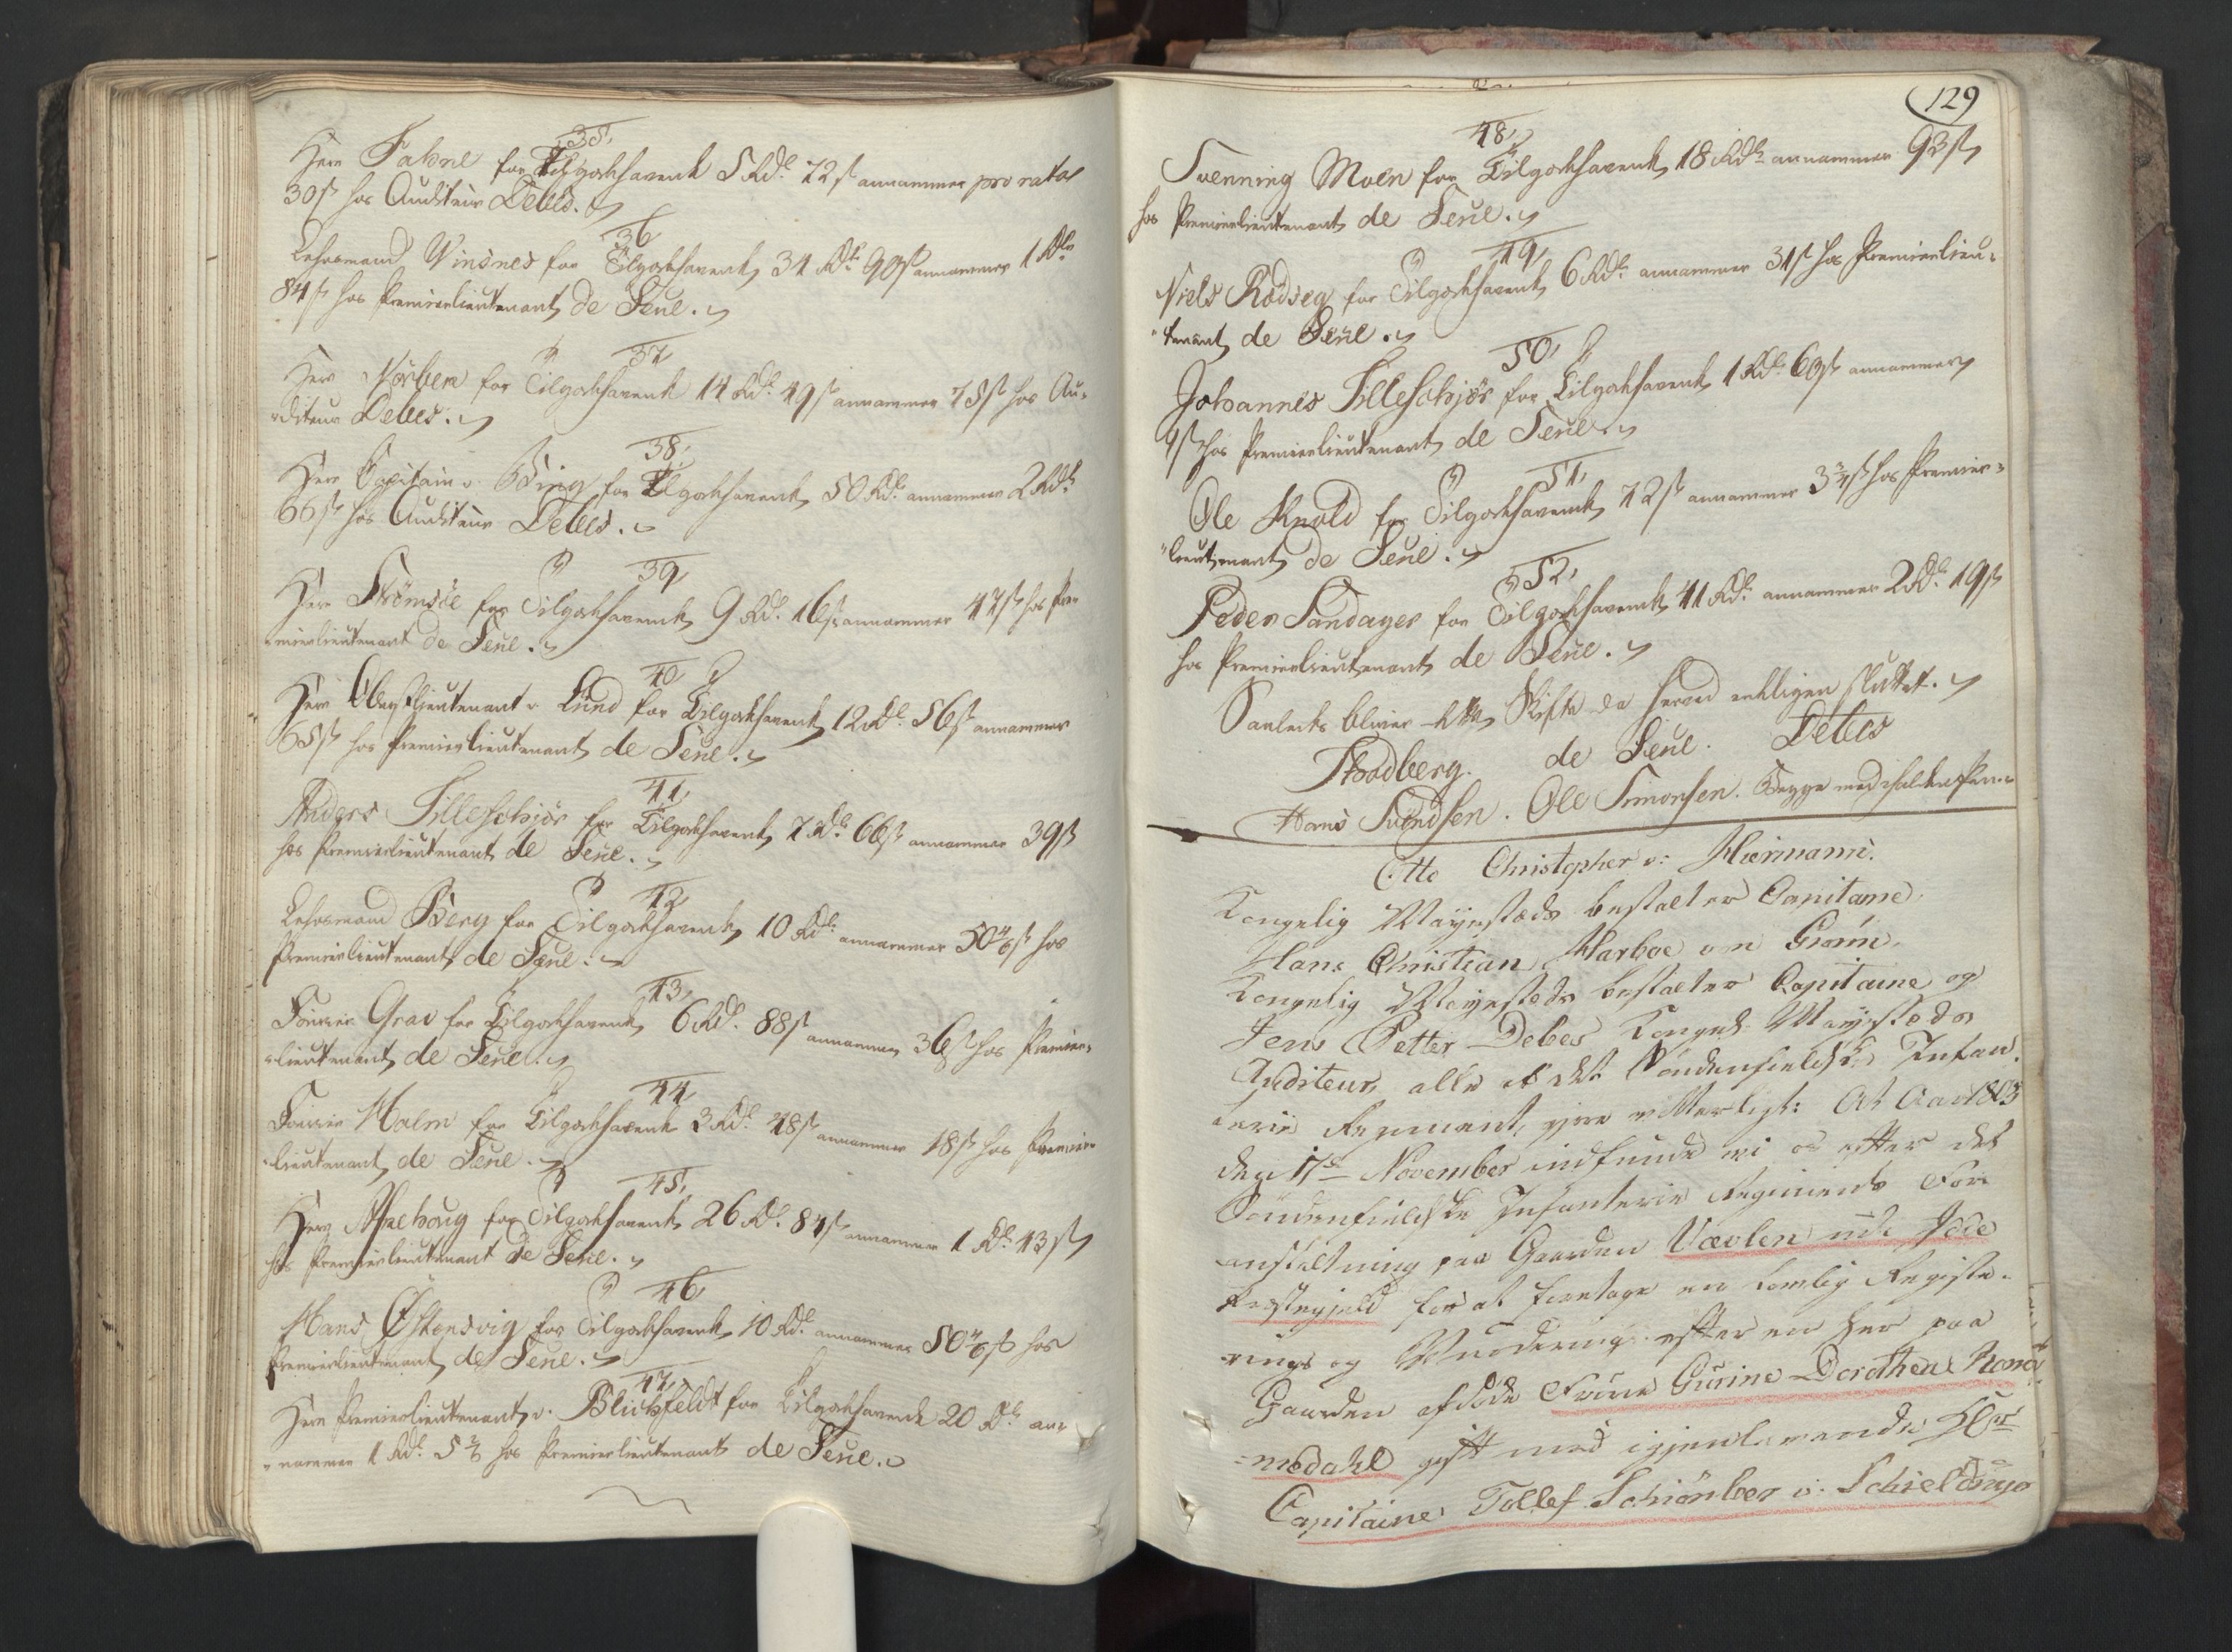 35,
Herr Fabne for Tilgodehavende 5 Rd. 72 s annammer pro rata
30 s hos Auditeur Debes.
36
Lehnsmand Vinsnes for Tilgodehavende 34 Rd. 90 s annammer 1 Rd.
84 s hos Premierlieutenant de Seue.
37
Herr Nörbeck for Tilgodehavende 14 Rd. 49 s annammer 75 s hos Au-
diteur Debes.
38,
Herr Capitain v. Bing for Tilgodehavende 50 Rd. annammer 2 Rd.
66 s hos Auditeur Debes.
39,
Herr Strömsöe for Tilgodehavende 9 Rd. 16 s annammer 47 s hos Pre-
mierlieutenant de Seue.
40
Herr Oberstlieutenant v. Lund for Tilgodehavende 12 Rd. 56 s annammer
65 s hos Premierlieutenant de Seue.
41,
Anders Silleschiör for Tilgodehavende 7 Rd. 66 s annammer 39 s
hos Premierlieutenant de Seue.
42,
Lehnsmand Berg for Tilgodehavende 10 Rd. annammer 50 4/6 s hos
Premierlieutenant de Seue.
43,
Fourier Grav for Tilgodehavende 6 Rd. 88 s annammer 36 s hos Premier-
lieutenant de Seue.
44,
Fourier Malm for Tilgodehavende 3 Rd. 48 s annammer 18 s hos Premier-
lieutenant de Seue.
45,
Herr for Tilgodehavende 26 Rd. 84 s annammer 1 Rd. 43 s
hos Premierlieutenant de Seue.
46,
Hans Östensvig for Tilgodehavende 10 Rd. annammer 50 4/6 s hos
Premierlieutenant de Seue.
47,
Herr Premierlieutenant v. Blichfeldt for Tilgodehavende 20 Rd. an-
nammer 1 Rd. 5 2/6 hos Premierlieutenant de Seue.
129
48,
Svenning Moen for Tilgodehavende 18 Rd. annammer 93 s
hos Premierlieutenant de Seue.
49,
Niels Rödseg for Tilgodehavende 6 Rd. annammer 31 s hos Premierlieu-
tenant de Seue.
50,
Johannes Silleschiör for Tilgodehavende 1 Rd. 69 s annammer
9 s hos Premierlieutenant de Seue.
51,
Ole Knold for Tilgodehavende 72 s annammer 3 3/4 s hos Premier-
lieutenant de Seue.
52,
Peder Sandager for Tilgodehavende 41 Rd. annammer 2 Rd. 19 s
hos Premierlieutenant de Seue.
Saaledes bliver dette Skifte da herved endeligen sluttet.
Stodberg. de Seue. Debes
Hans Svendsen. Ole Simonsen. Begge med iholden Pen
Otto Christopher v: Huermann.
Kongelig Mayestæds bestalter Capitaine,
Hans Christian Harboe von Grønn.
Kongelig Mayestæds bestalter Capitaine og
Jens Petter Debes Kongel: Mayestæds
Auditeur, alle af det Søndenfieldske Infan-
terie Regiment, giøre vitterligt: At Aar 1803
den 17de November indfunde vi os efter det
Søndenfieldske Infanterie Regiments For-
anstaltning paa Gaarden Vævlen udi Idde
Præstegield for at foretage en Lovlig Registe-
rings og Vurdering efter en her paa
Gaarden afdøde Frue Gurine Dorothea Roms-
medahl gift med igienlevende Hr
Capitaine Tollef Schiønboe v: Schieldrup